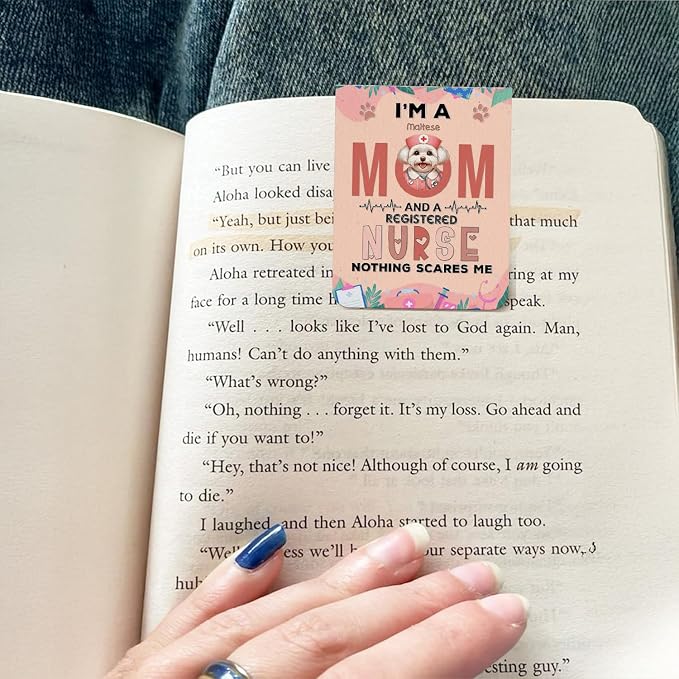 I'M A
Maltese
MOM
AND A
REGISTERED
NURSE
NOTHING SCARES ME
"But you can live
Aloha looked disa
"Yeah, but just bei that much
on its own. How you
Aloha retreated in ring at my
face for a long time h speak.
"Well . . . looks like I've lost to God again. Man,
humans! Can't do anything with them."
"What's wrong?"
"Oh, nothing . . . forget it. It's my loss. Go ahead and
die if you want to!"
"Hey, that's not nice! Although of course, I am going
to die."
I laughed and then Aloha started to laugh too.
"Well ess we'll our separate ways now,
huh
esting guy."